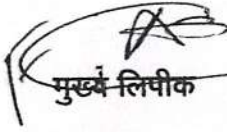 मुख्य लिपीक